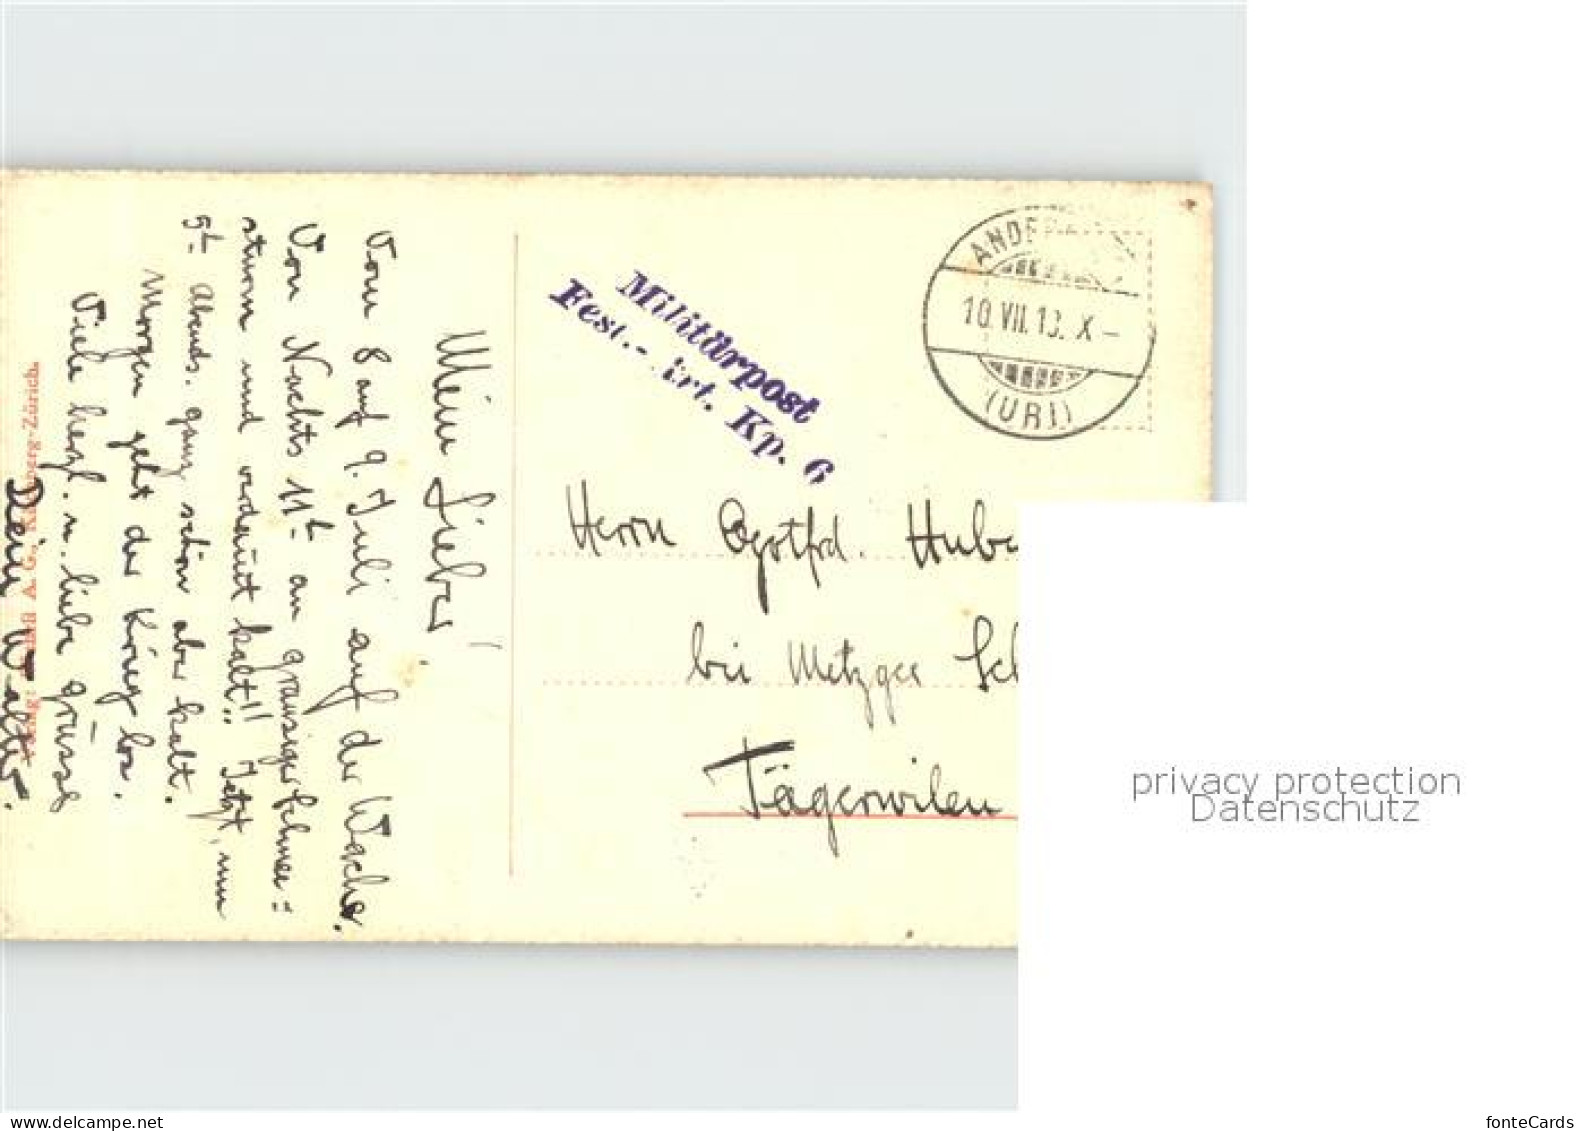 Mein Lieber!
Vom 8 auf 9. Juli auf der Wache.
Von Nachts 11h an grausiger Schnee=
sturm und verdammt kalt!! Jetzt, nun
5h Abends. ganz schön aber kalt.
Morgen geht der Krieg los.
Viele herzl. u. liebe Grüsse
Dein Walter.
A. G., Kilchberg-Zürich.
Militärpost
Fest.-Art. Kp. 6
ANDER
10.VII.13. X–
(URI)
Herrn Hube
bei Metzger Sch
Tägerwilen
privacy protection
Datenschutz
fonteCards